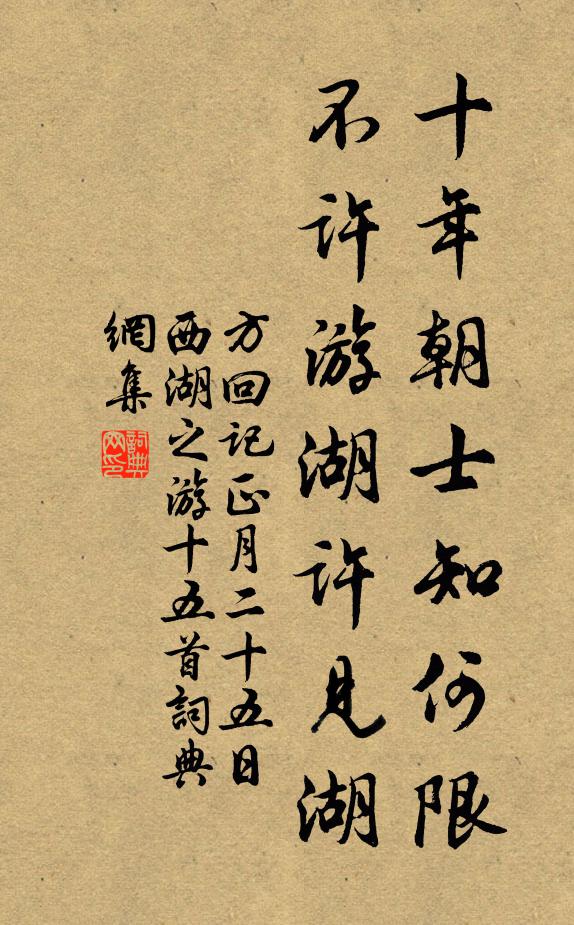 十年朝士知何限
不許游湖許見湖
方回記正月二十五日
西湖之游十五首詞典
網集
詞典網印